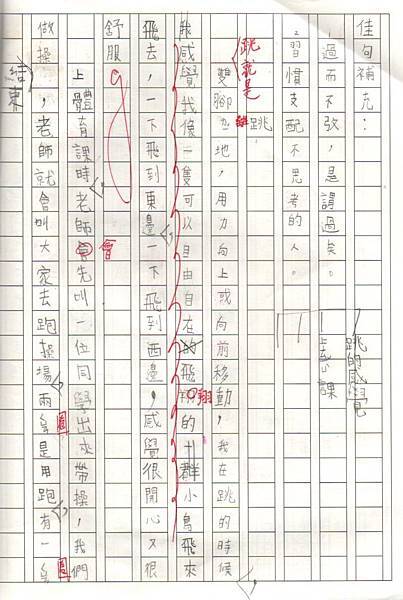 佳句補充：
1.過而不改，是謂過矣。
2.習慣支配不思考的人。
跳的感覺
課
跳就是
雙腳離地，用力向上或向前移動，我在跳的時候，
我感覺我像一隻可以自由自在的飛翔的一群小鳥飛來
飛去，一下飛到東邊，一下飛到西邊，感覺很開心又很
舒服。
上體育課時，老師會先叫一位同學出來帶操，我們
做操結束，老師就會叫大家去跑操場，兩圈是用跑，有一圈